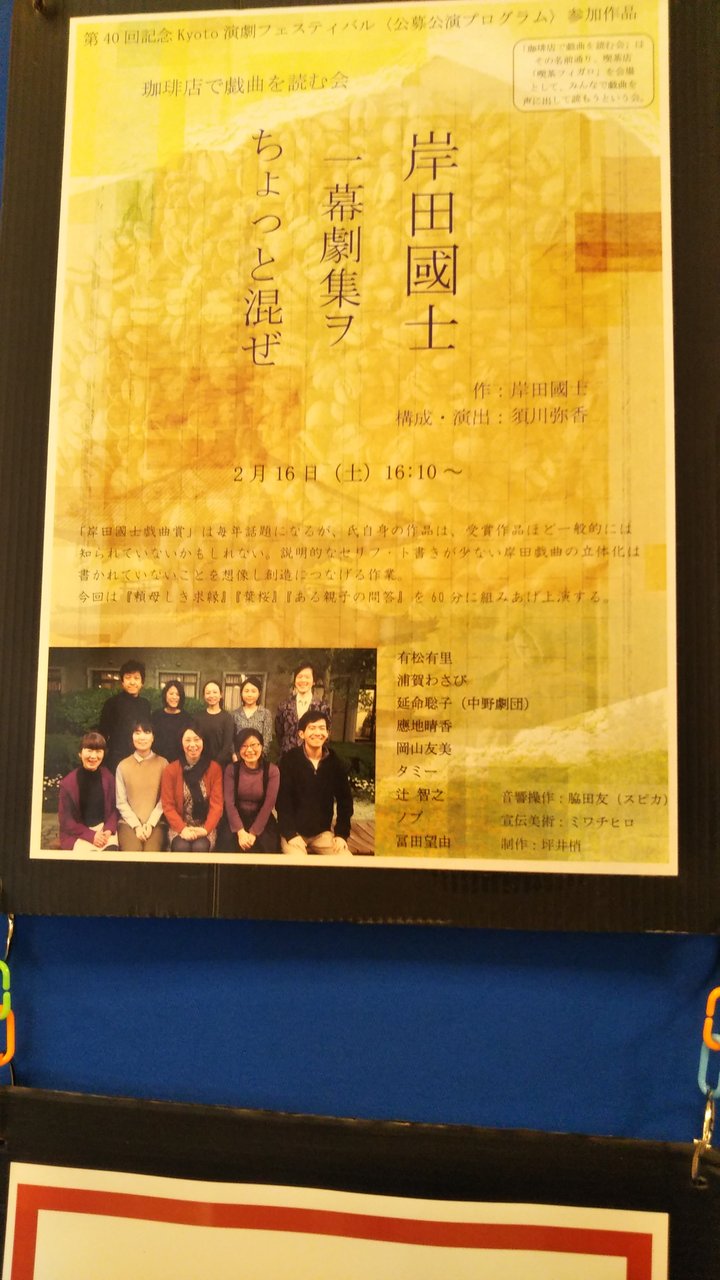 第40回記念Kyoto演劇フェスティバル〈公募公演プログラム〉参加作品
「珈琲店で戯曲を読む会」は
その名前通り、喫茶店
「喫茶フィガロ」を会場
として、みんなで戯曲を
声に出して読もうという会。
珈琲店で戯曲を読む会
岸田國士
一幕劇集ヲ
ちょっと混ぜ
作：岸田國士
構成・演出：須川弥香
2月16日（土）16:10～
「岸田國士戯曲賞」は毎年話題になるが、氏自身の作品は、受賞作品ほど一般的には
知られていないかもしれない。説明的なセリフ・ト書きが少ない岸田戯曲の立体化は
書かれていないことを想像し創造につなげる作業。
今回は『頼母しき求縁』『葉桜』『ある親子の問答』を60分に組みあげ上演する。
有松有里
浦賀わさび
延命聡子（中野劇団）
應地晴香
岡山友美
タミー
辻 智之
ノブ
冨田望由
音響操作：脇田友（スピカ）
宣伝美術：ミワチヒロ
制作：坪井梢